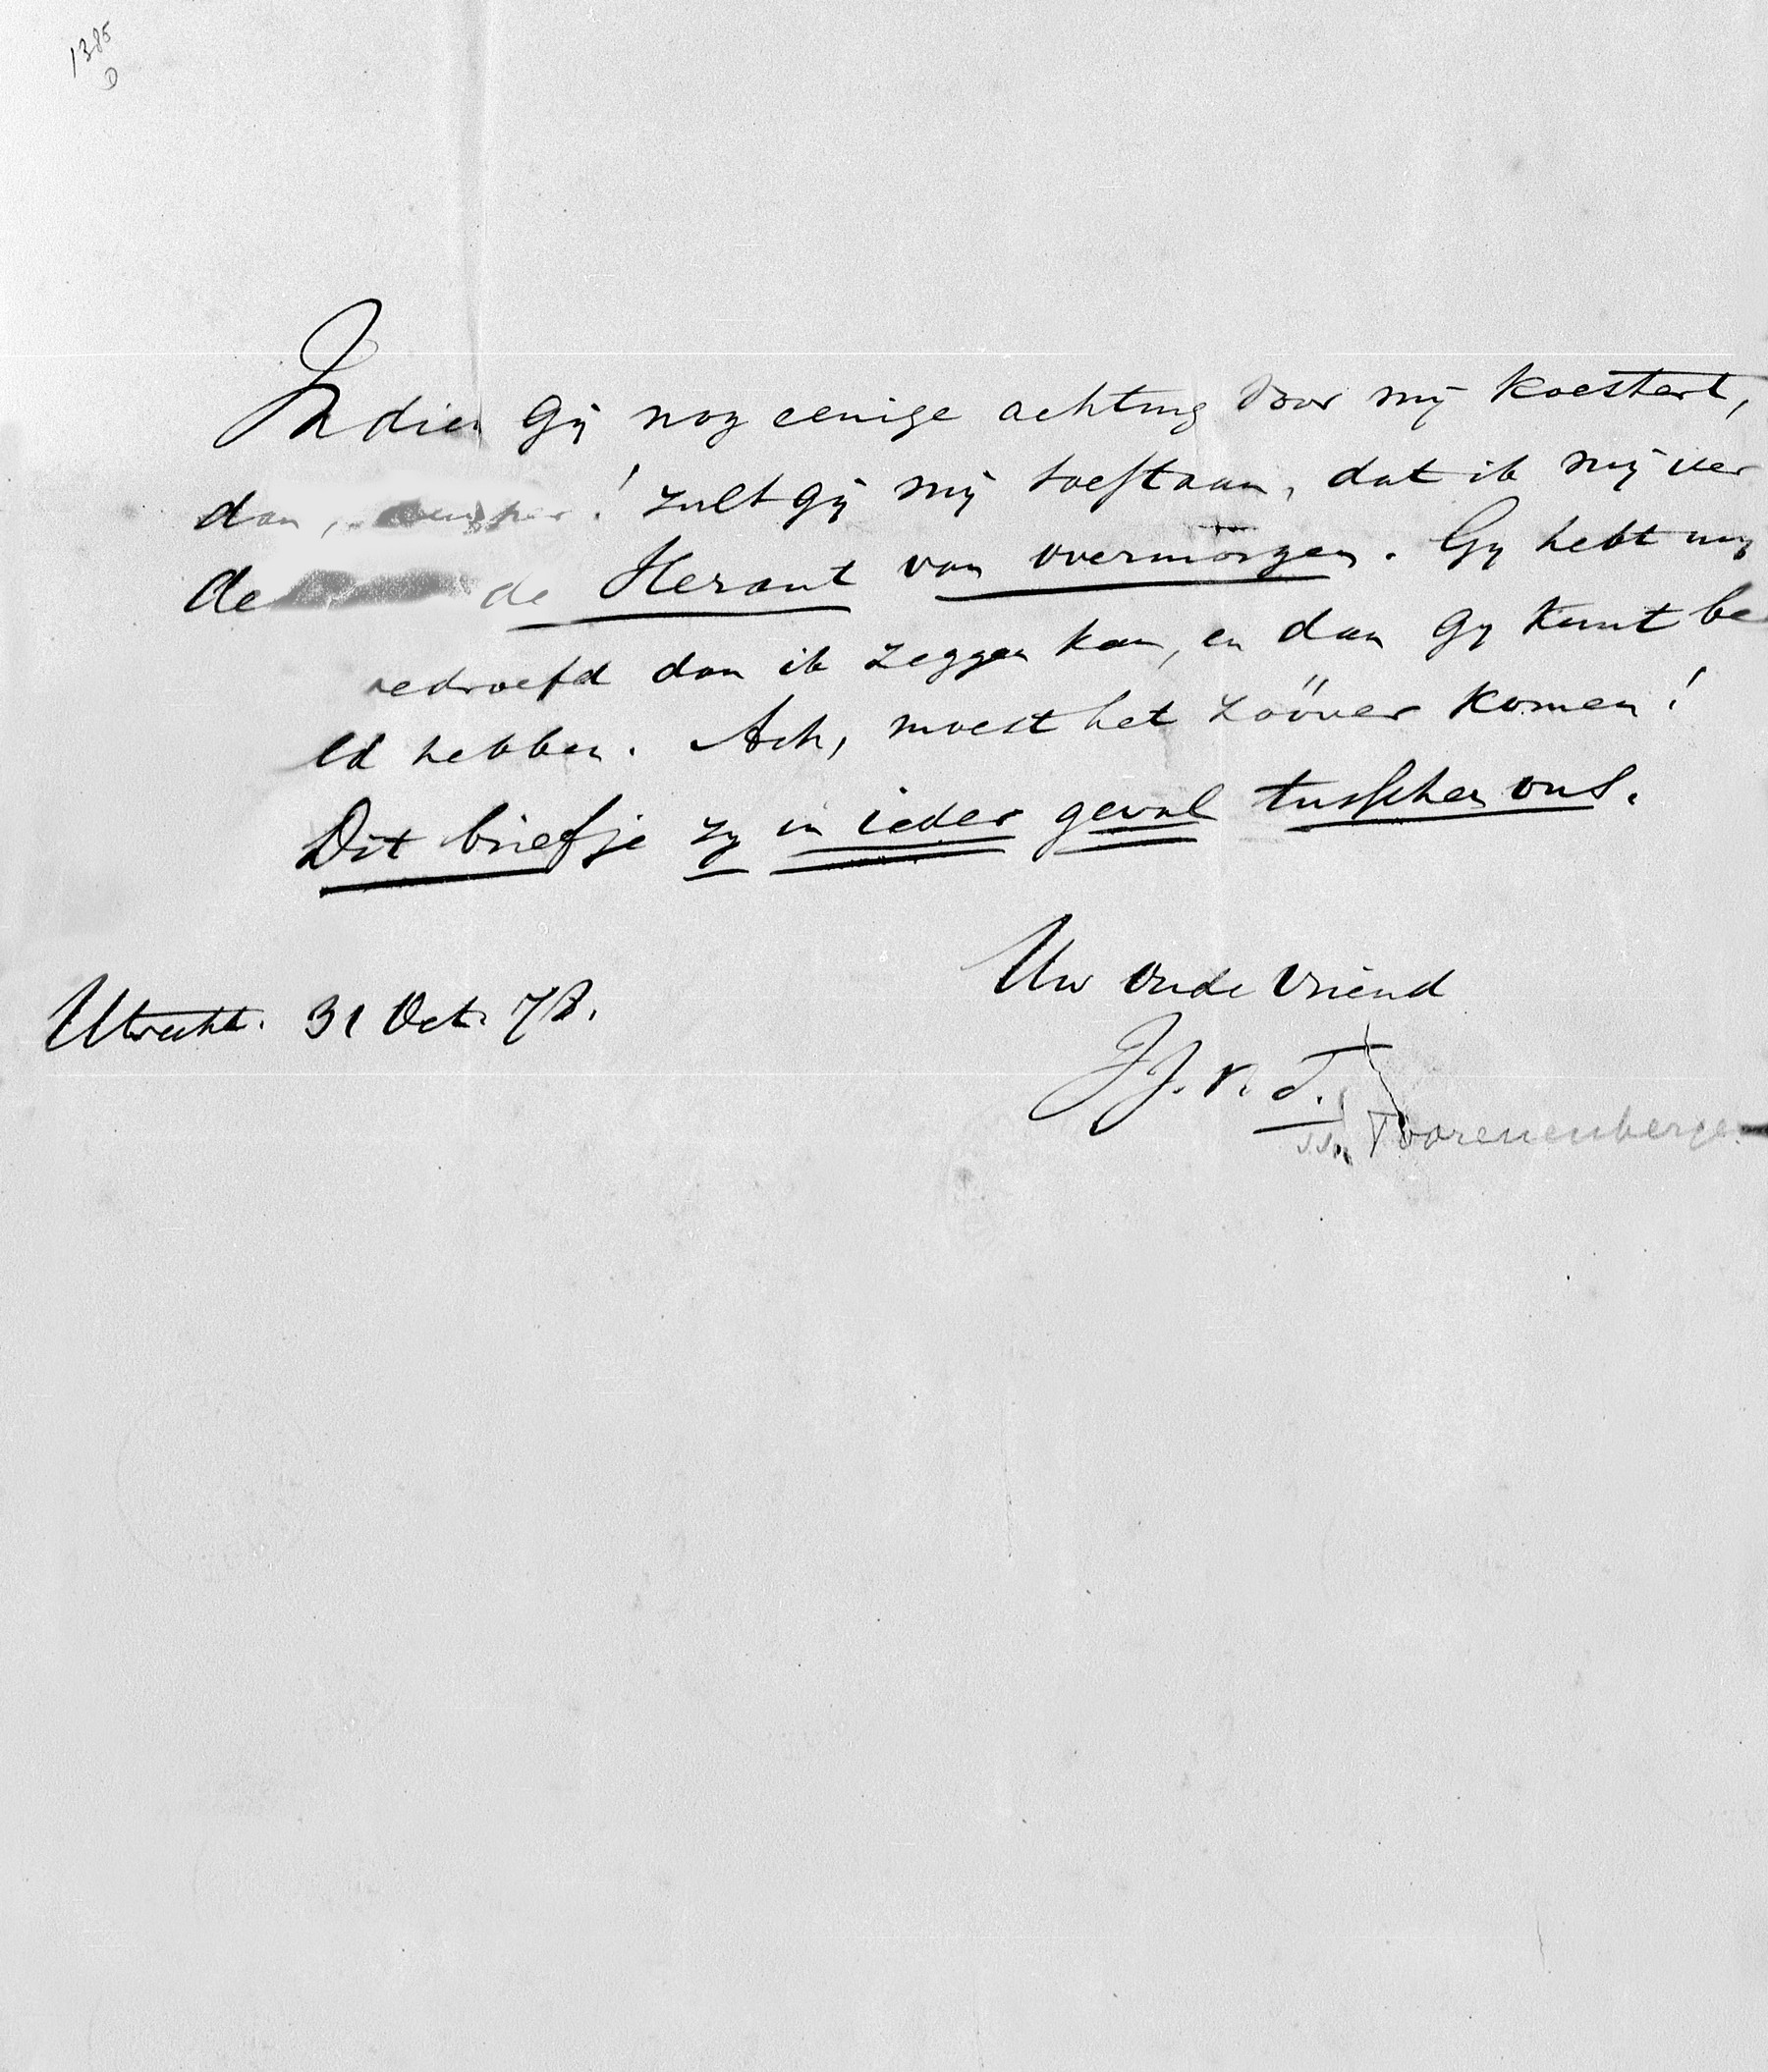 1385
D
Indien Gij nog eenige achting voor mij koestert,
dan, ! zult gij mij toestaan, dat ik mij ver
de de Heraut van overmorgen. Gij hebt mij
edroefd dan ik zeggen kan, en dan gij kunt be
ld hebben. Ach, moest het zoöver komen!
Dit briefje zij in ieder geval tusschen ons.
Uw oude vriend
Utrecht. 31 Oct. 78.
J J. v. T.
Toorenenbergen